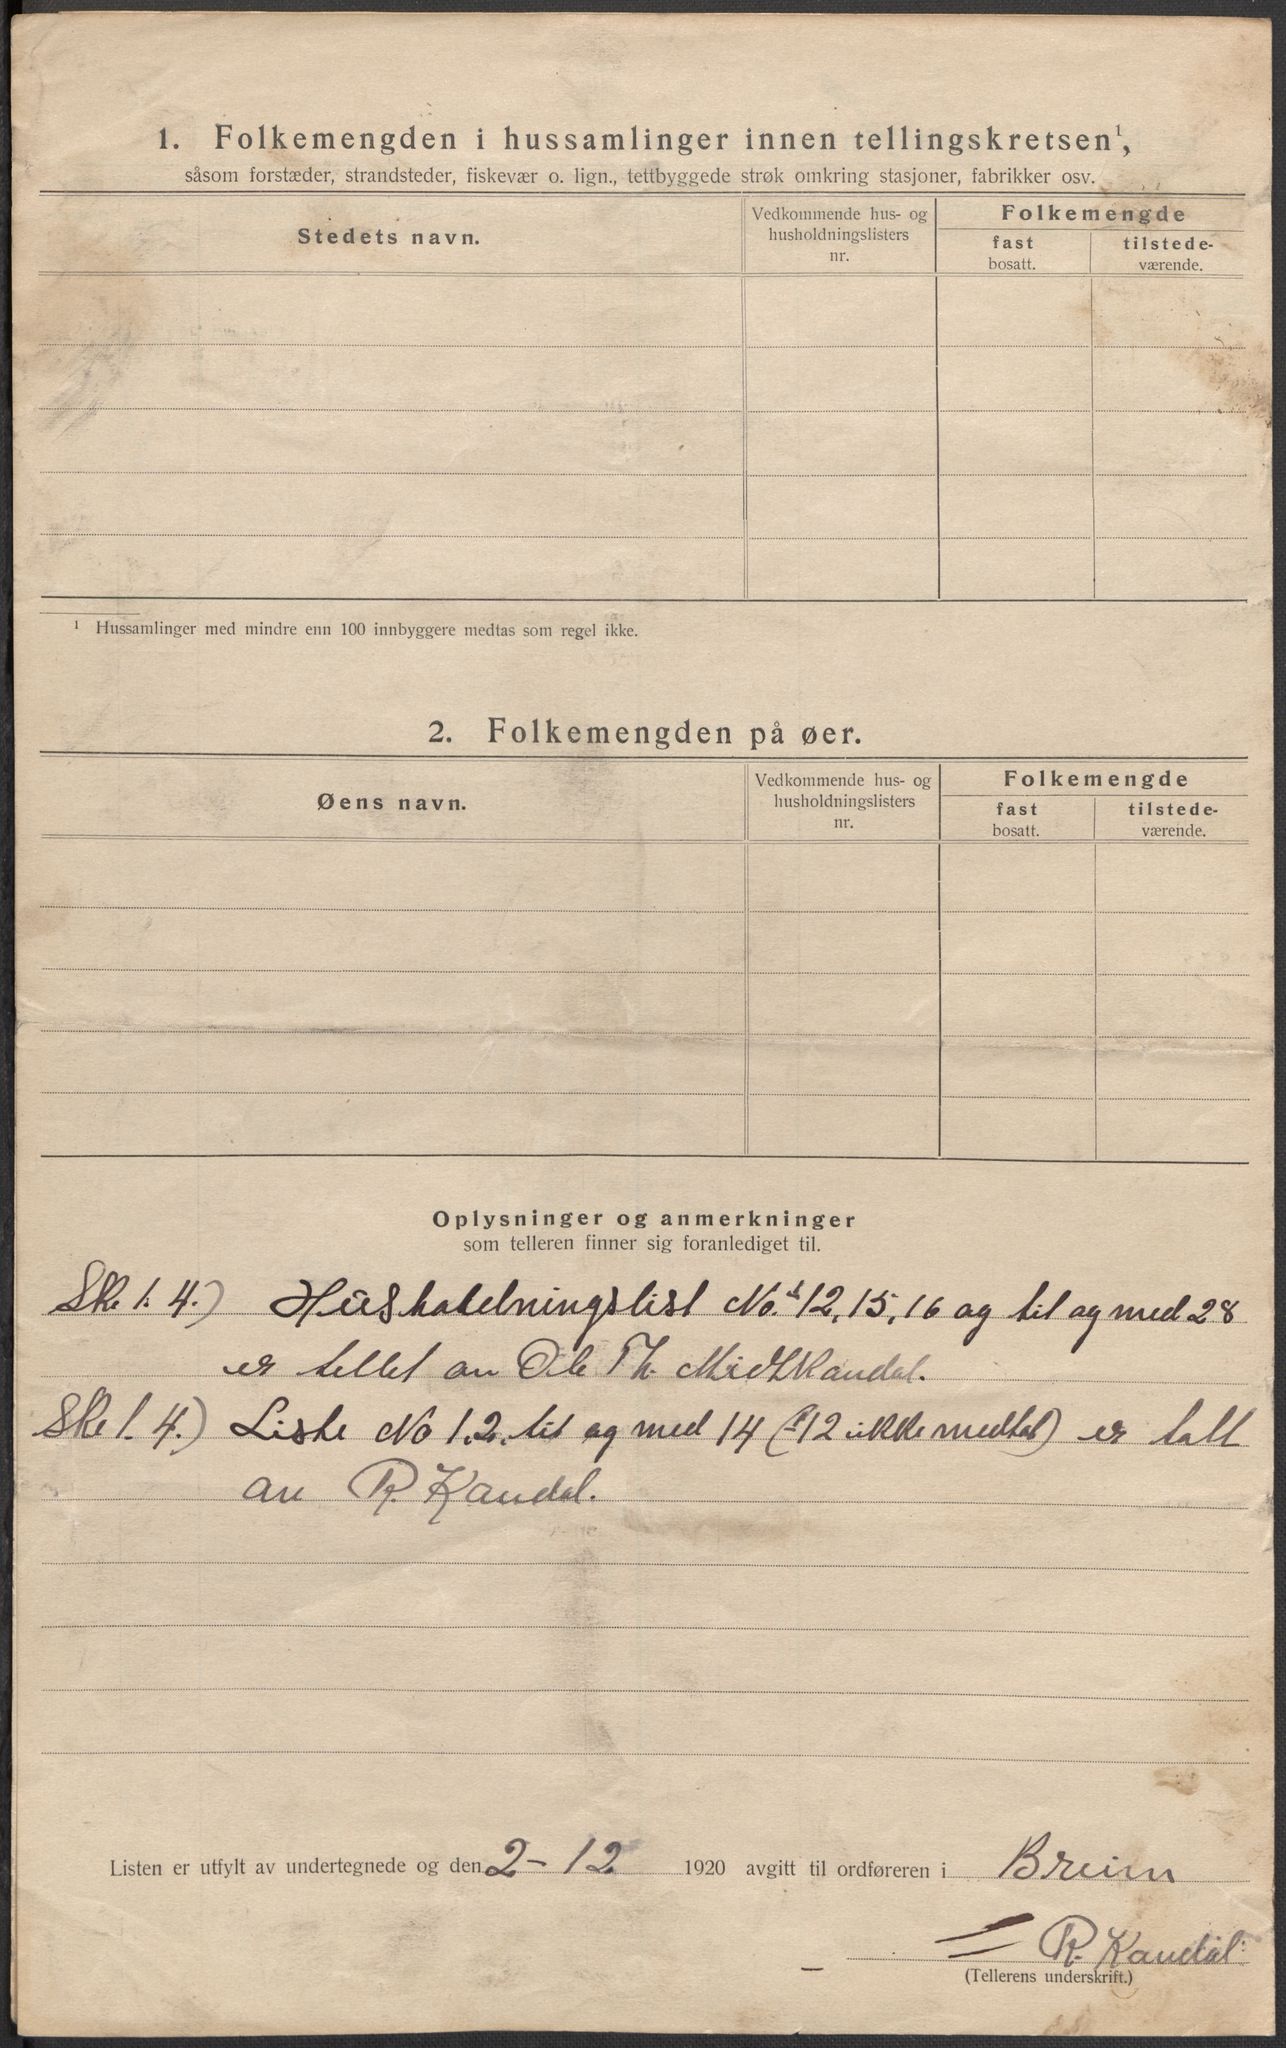 1. Folkemengden i hussamlinger innen tellingskretsen¹,
såsom forstæder, strandsteder, fiskevær o. lign., tettbyggede strøk omkring stasjoner, fabrikker osv.
Stedets navn.
Vedkommende hus- og
husholdningslisters
nr.
Folkemengde
fast
bosatt.
tilstede-
værende.
¹ Hussamlinger med mindre enn 100 innbyggere medtas som regel ikke.
2. Folkemengden på øer.
Øens navn.
Vedkommende hus- og
husholdningslisters
nr.
Folkemengde
fast
bosatt.
tilstede-
værende.
Oplysninger og anmerkninger
som telleren finner sig foranlediget til.
Ske 1. 4.) Hüshatelningslist No. 12, 15, 16 og til og med 28
er tellet av Ole Th. Midtkandal.
Ske 1. 4.) Liste No 1.2. til og med 14 (12 ikke medtat) er talt
av R. Kandal.
Listen er utfylt av undertegnede og den 2-12 1920 avgitt til ordføreren i Breim
R. Kandal
(Tellerens underskrift.)